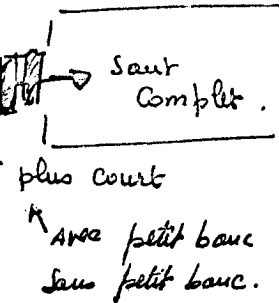 Saut
Complet.
plus court
Avec petit banc
Sans petit banc.